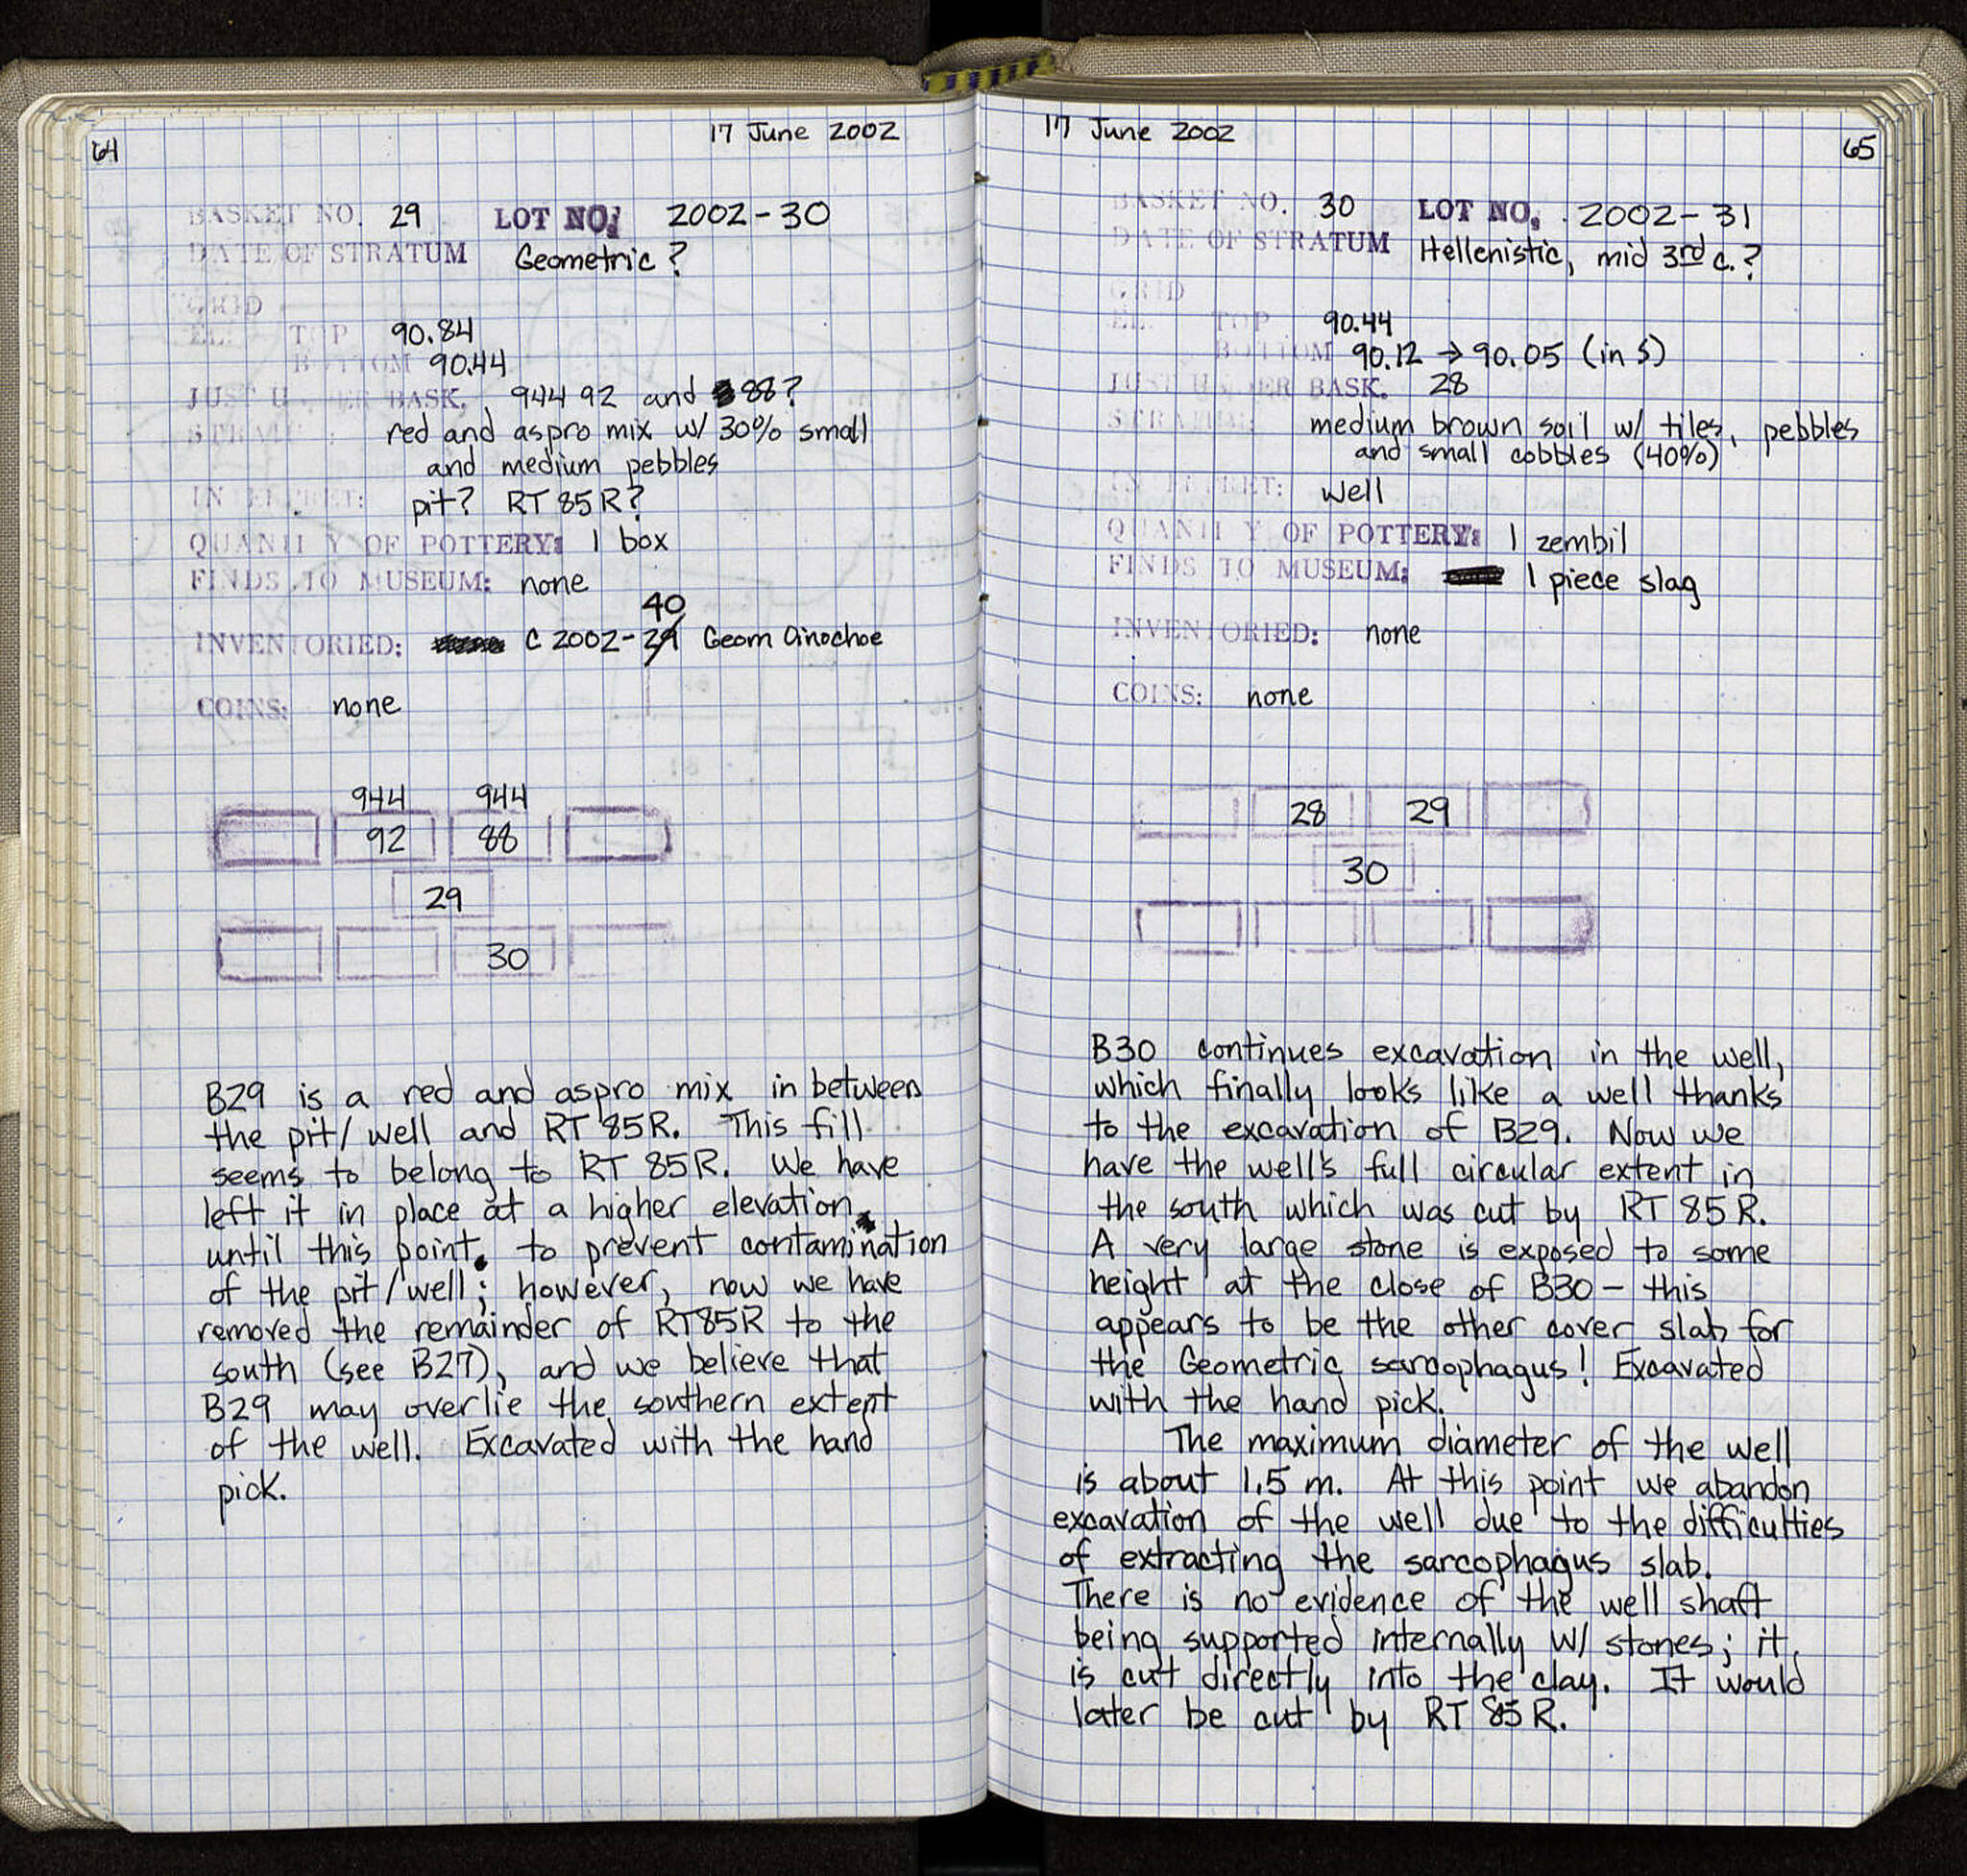 64
17 June 2002
BASKET NO. 29 LOT NO. 2002-30
DATE OF STRATUM Geometric?
GRID
EL. TOP 90.84
BOTTOM 90.44
JUST U ER BASK. 944 92 and 88?
STRAT : red and aspro mix w/ 30% small
and medium pebbles
INTERPRET: pit? RT 85R?
QUANTI Y OF POTTERY: 1 box
FINDS TO MUSEUM: none
40
INVENTORIED: C 2002-29 Geom Oinochoe
COINS: none
944 944
92 88
29
30
B29 is a red and aspro mix in between
the pit/well and RT 85R. This fill
seems to belong to RT 85R. We have
left it in place at a higher elevation
until this point. to prevent contamination
of the pit/well; however, now we have
removed the remainder of RT85R to the
south (see B27), and we believe that
B29 may overlie the southern extent
of the well. Excavated with the hand
pick.
17 June 2002
65
BASKET NO. 30 LOT NO. 2002-31
DATE OF STRATUM Hellenistic, mid 3rd c.?
GRID
EL. TOP 90.44
BOTTOM 90.12 → 90.05 (in S)
JUST U ER BASK. 28
STRATUM: medium brown soil w/ tiles, pebbles
and small cobbles (40%)
INTERPRET: well
QUANTI Y OF POTTERY: 1 zembil
FINDS TO MUSEUM: 1 piece slag
INVENTORIED: none
COINS: none
28 29
30
B30 continues excavation in the well,
which finally looks like a well thanks
to the excavation of B29. Now we
have the well's full circular extent in
the south which was cut by RT 85R.
A very large stone is exposed to some
height at the close of B30 - this
appears to be the other cover slab for
the Geometric sarcophagus! Excavated
with the hand pick.
The maximum diameter of the well
is about 1.5 m. At this point we abandon
excavation of the well due to the difficulties
of extracting the sarcophagus slab.
There is no evidence of the well shaft
being supported internally w/ stones; it
is cut directly into the clay. It would
later be cut by RT 85R.